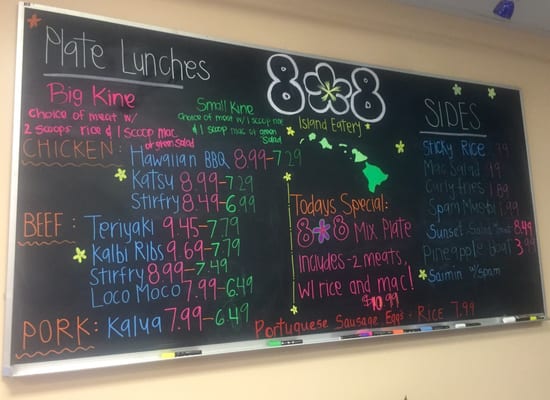 Plate Lunches
Big Kine
choice of meat w/
2 scoops rice & 1 scoop mac
or green salad
Small Kine
choice of meat w/ 1 scoop rice
& 1 scoop mac or green
salad
CHICKEN: Hawaiian BBQ 8.99-7.29
Katsu 8.99-7.29
Stirfry 8.49-6.99
BEEF: Teriyaki 9.45-7.79
Kalbi Ribs 9.69-7.79
Stirfry 8.99-7.49
Loco Moco 7.99-6.49
PORK: Kalua 7.99-6.49
8 8
Island Eatery
Todays Special:
8 8 Mix Plate
Includes-2 meats,
w/ rice and mac!
$10.99
Portuguese Sausage Eggs + Rice 7.99
SIDES
Sticky Rice .99
Mac Salad .99
Curly fries 1.89
Spam Musubi 1.99
Sunset Salad 8.49
Pineapple boat 3.99
Saimin w/spam